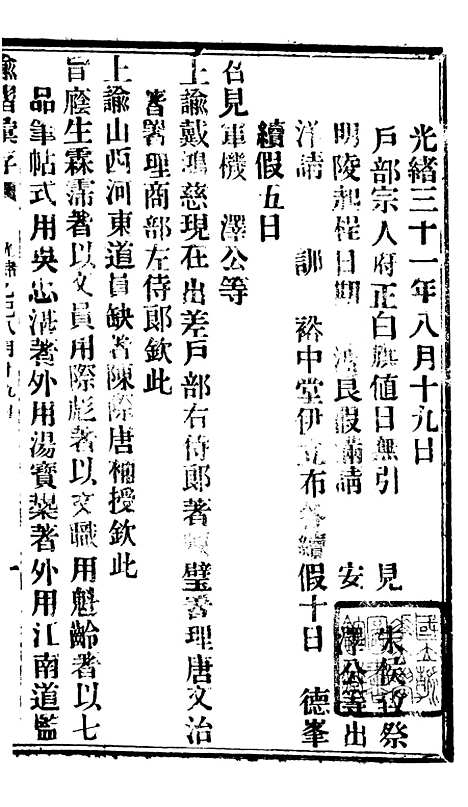 光緒三十一年八月十九日
戶部宗人府正白旗値日無引　見　朱侯致祭
明陵起程日期　良假滿請　安　澤公等出
洋請　訓　裕中堂伊立布各續假十日　德峯
續假五日
召見軍機　澤公等
上諭戴鴻慈現在出差戶部右侍郎著璧署理唐文治
著署理商部左侍郎欽此
上諭山西河東道員缺著陳際唐補授欽此
旨廕生霖濡著以文員用際彪著以文職用魁齡著以七
品筆帖式用吳忠湛著外用湯寶棻著外用江南道監
諭摺彙存　光緒乙巳八月十九日　一